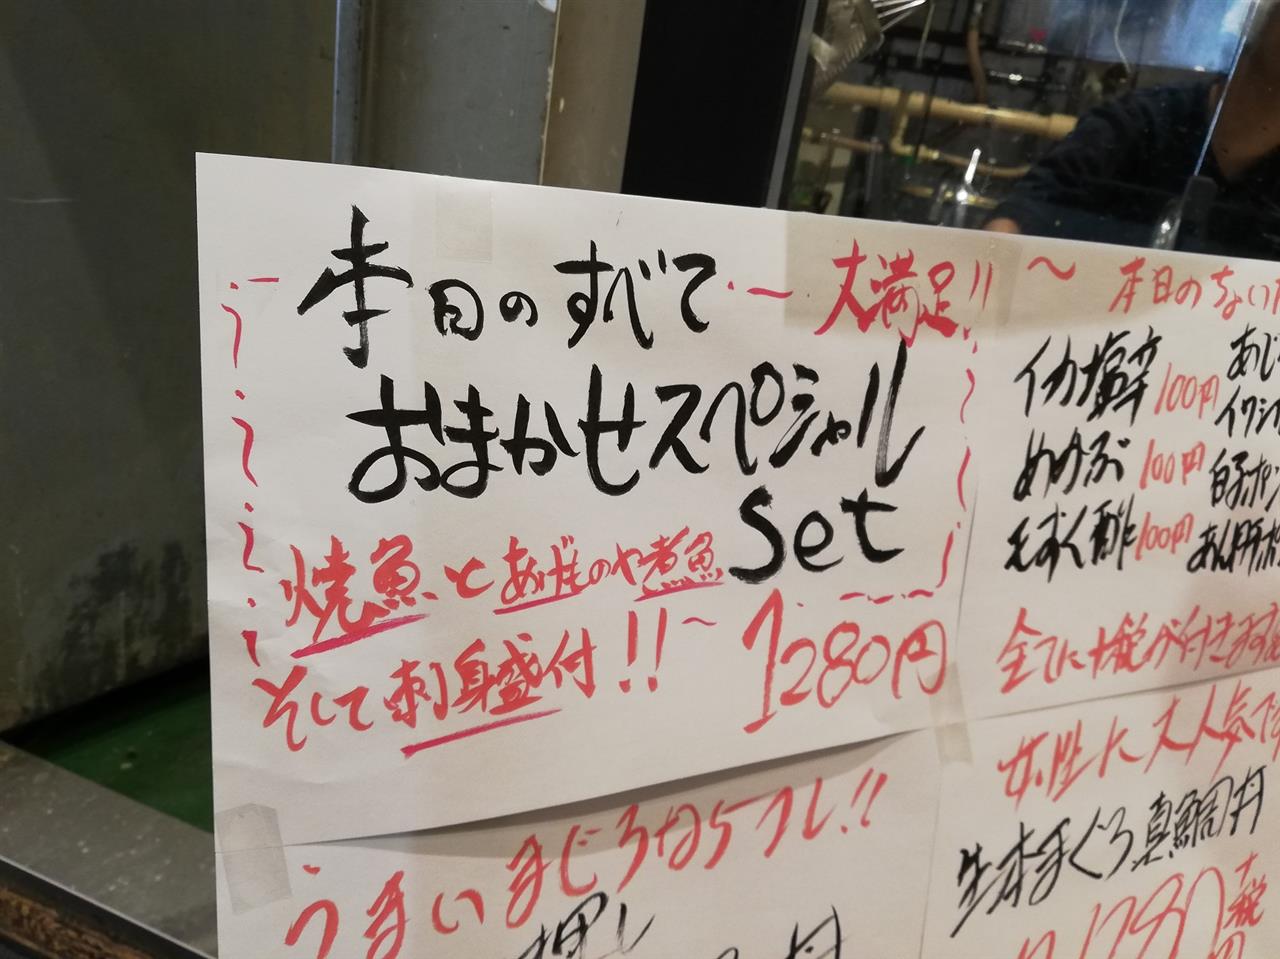 本日のすべて
大満足!!
おまかせスペシャル
Set
焼魚とあげものや煮魚
そして刺身盛付!!
1280円
〜本日のちょい
イカ塩辛 100円
めかぶ 100円
もずく酢 100円
あじ
イワシ
白子ポン
あん肝ポ
全てに十税が付きます
うまいまぐろならコレ!!
押し
丼
女性に大人気です
生本まぐろ真鯛丼
税